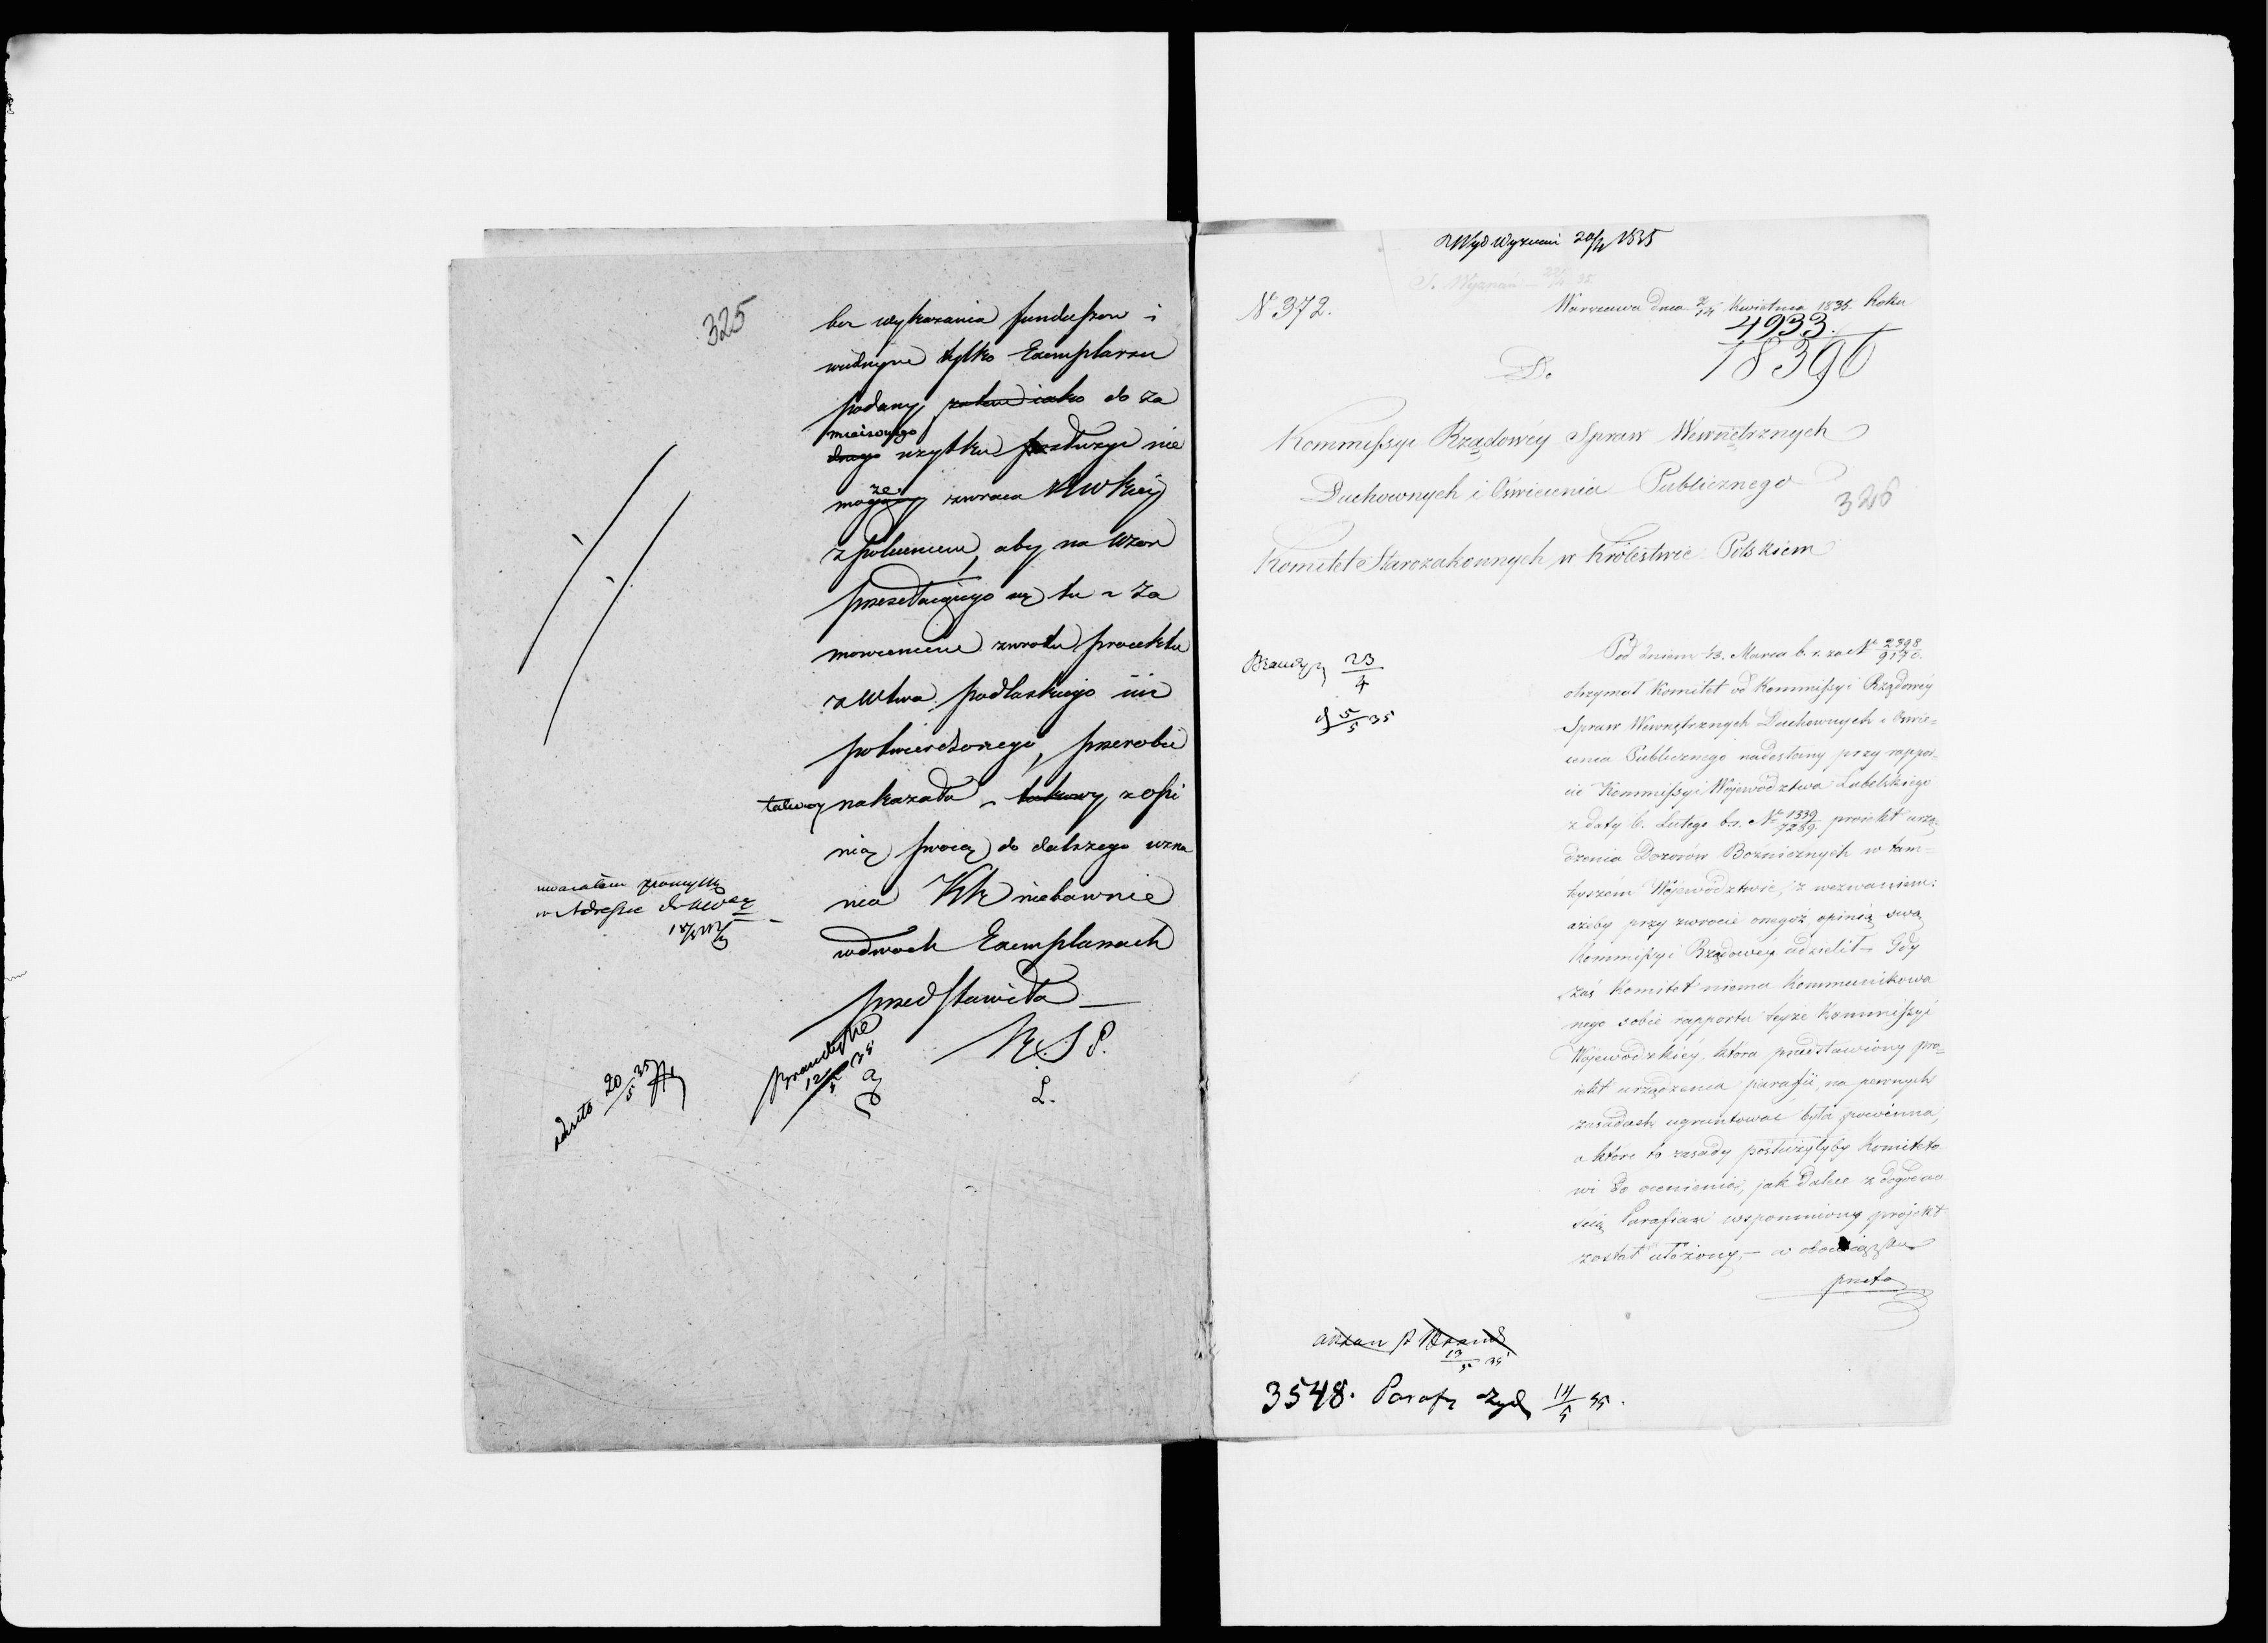 325
bez wykazania funduszow i
iednym tylko Exemplarzu
podany, do za
mieisowego
użytku służyć nie
może zwraca KWtkiey
z poleceniem, aby na wzor
przesełaiącego się tu za
mowieniem zwrotu proiektu
z Wtwa podlaskiego iuz
potwierdzonego, przerobić
nakazała, takowy z opi
nią swoią do dalszego uzna
nia KR niebawnie
w dwoch Exemplarzach
przedstawiła
uważałem pomyłkę
w Adressie
20/5 35
12/5 35
L.
Wyd Wyznań 20/4 1835
S. Wyznań
No 372.
Warszawa dnia 2/14 Kwietnia 1835. Roku
4933.
18396
Do
Kommissyi Rządowéy Spraw Wewnętrznych
Duchownych i Oświecenia Publicznego
326
Komitet Starozakonnych w Królestwie Polskiem
23/4
5/5 35
Pod dniem 13. Marca b. r. za No 2398/9170.
otrzymał Komitet od Kommissyi Rządowéy
Spraw Wewnętrznych Duchownych i Oświe=
cenia Publicznego nadesłany przy rappor=
cie Kommissyi Województwa Lubelskiego
z daty 6. Lutego b.r. No 1339/7289. proiekt urzą=
dzenia Dozorów Bożniczych w tam=
tyszém Województwie, z wezwaniem:
ażeby przy zwrocie onegoż opinią swą
Kommissyi Rządowéy udzielił. Gdy
zaś Komitet niema Kommunikowa
nego sobie rapportu teyże Kommissyi
Wojewódzkiéy, która przedstawiony pro=
iekt urządzenia parafii, na pewnych
zasadach ugruntować była powinna,
a które to zasady posłużyłyby Komiteto
wi do ocenienia, jak dalece z dogodno
ścią Parafian wspomniony projekt
został ułożony, — w obowiązku
13/5 35
3548. Paraf. Żyd. 14/5 35.